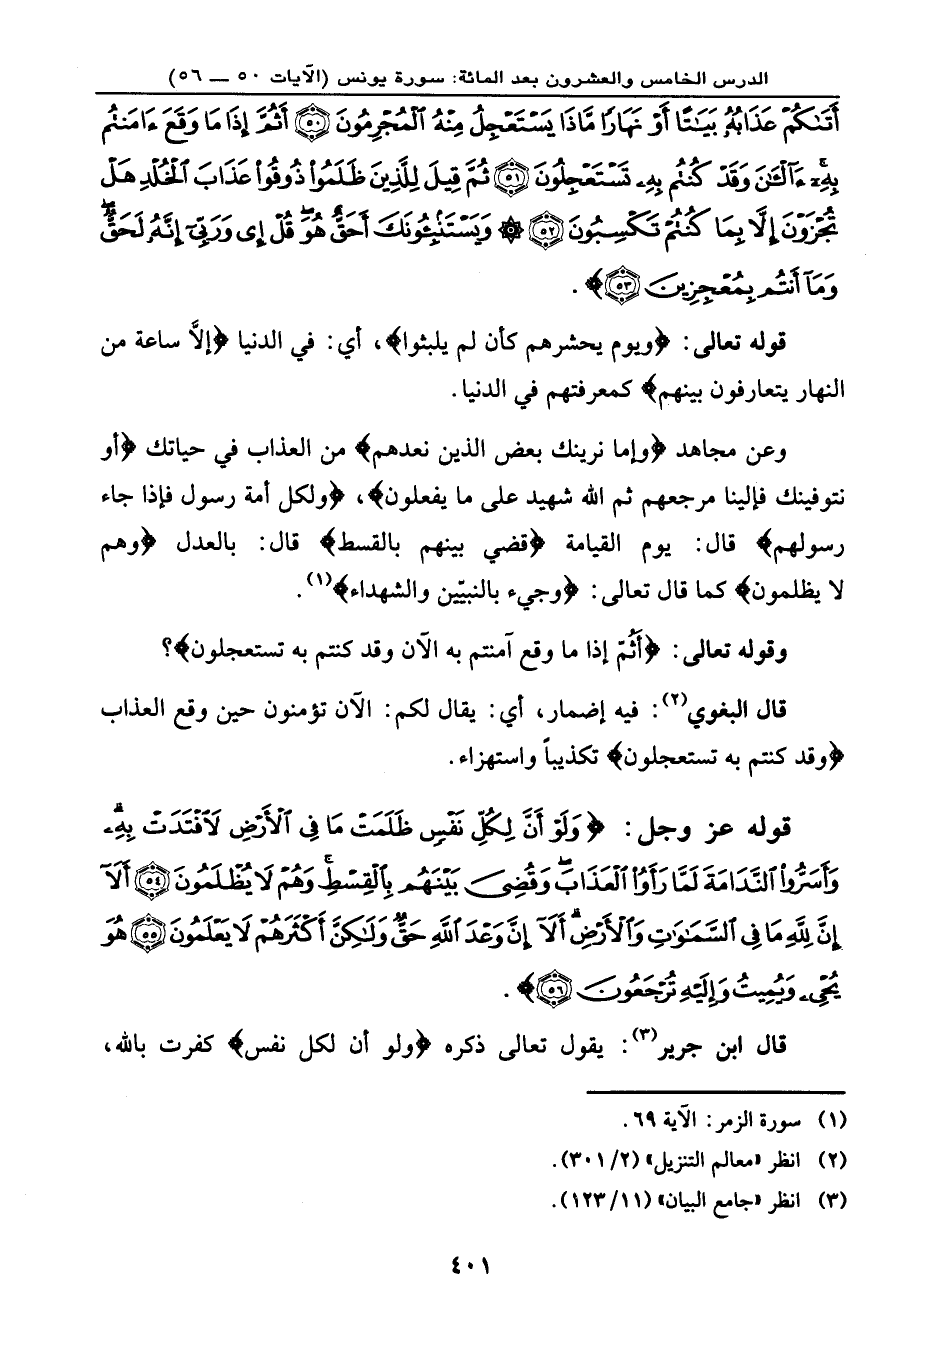 الدرس الخامس والعشرون بعد المائة: سورة يونس (الآيات ٥٠ ــ ٥٦)
أَتَىٰكُمْ عَذَابُهُۥ بَيَٰتًا أَوْ نَهَارًا مَّاذَا يَسْتَعْجِلُ مِنْهُ ٱلْمُجْرِمُونَ ۝٥٠ أَثُمَّ إِذَا مَا وَقَعَ ءَامَنتُم
بِهِۦٓ ۚ ءَآلْـَٰٔنَ وَقَدْ كُنتُم بِهِۦ تَسْتَعْجِلُونَ ۝٥١ ثُمَّ قِيلَ لِلَّذِينَ ظَلَمُوا۟ ذُوقُوا۟ عَذَابَ ٱلْخُلْدِ هَلْ
تُجْزَوْنَ إِلَّا بِمَا كُنتُمْ تَكْسِبُونَ ۝٥٢ ۞ وَيَسْتَنۢبِـُٔونَكَ أَحَقٌّ هُوَ ۖ قُلْ إِى وَرَبِّىٓ إِنَّهُۥ لَحَقٌّ ۖ
وَمَآ أَنتُم بِمُعْجِزِينَ ۝٥٣﴾ .
قوله تعالى: ﴿ويوم يحشرهم كأن لم يلبثوا﴾، أي: في الدنيا ﴿إلاَّ ساعة من
النهار يتعارفون بينهم﴾ كمعرفتهم في الدنيا.
وعن مجاهد ﴿وإما نرينك بعض الذين نعدهم﴾ من العذاب في حياتك ﴿أو
نتوفينك فإلينا مرجعهم ثم الله شهيد على ما يفعلون﴾، ﴿ولكل أمة رسول فإذا جاء
رسولهم﴾ قال: يوم القيامة ﴿قضي بينهم بالقسط﴾ قال: بالعدل ﴿وهم
لا يظلمون﴾ كما قال تعالى: ﴿وجيء بالنبيّين والشهداء﴾(١).
وقوله تعالى: ﴿أَثُمّ إذا ما وقع آمنتم به الآن وقد كنتم به تستعجلون﴾؟
قال البغوي(٢): فيه إضمار، أي: يقال لكم: الآن تؤمنون حين وقع العذاب
﴿وقد كنتم به تستعجلون﴾ تكذيباً واستهزاء.
قوله عز وجل: ﴿وَلَوْ أَنَّ لِكُلِّ نَفْسٍ ظَلَمَتْ مَا فِى ٱلْأَرْضِ لَٱفْتَدَتْ بِهِۦ ۗ
وَأَسَرُّوا۟ ٱلنَّدَامَةَ لَمَّا رَأَوُا۟ ٱلْعَذَابَ ۖ وَقُضِىَ بَيْنَهُم بِٱلْقِسْطِ ۚ وَهُمْ لَا يُظْلَمُونَ ۝٥٤ أَلَآ
إِنَّ لِلَّهِ مَا فِى ٱلسَّمَٰوَٰتِ وَٱلْأَرْضِ ۗ أَلَآ إِنَّ وَعْدَ ٱللَّهِ حَقٌّ وَلَٰكِنَّ أَكْثَرَهُمْ لَا يَعْلَمُونَ ۝٥٥ هُوَ
يُحْىِۦ وَيُمِيتُ وَإِلَيْهِ تُرْجَعُونَ ۝٥٦﴾ .
قال ابن جرير(٣): يقول تعالى ذكره ﴿ولو أن لكل نفس﴾ كفرت بالله،
(١) سورة الزمر: الآية ٦٩.
(٢) انظر «معالم التنزيل» (٣٠١/٢).
(٣) انظر «جامع البيان» (١٢٣/١١).
٤٠١